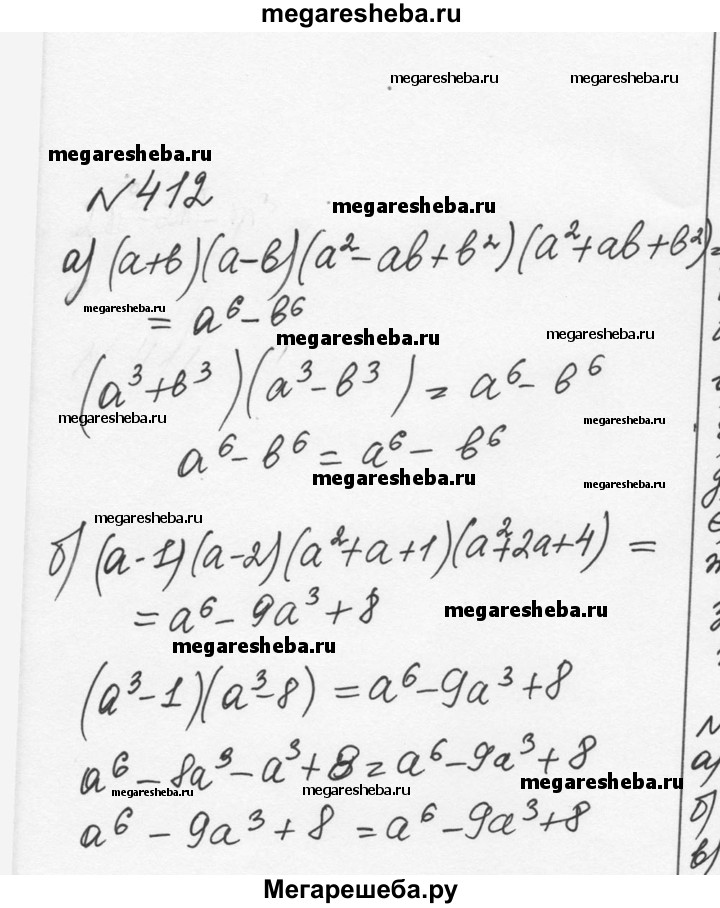 megaresheba.ru
megaresheba.ru megaresheba.ru
megaresheba.ru
№412
megaresheba.ru
а) (a+b)(a-b)(a²-ab+b²)(a²+ab+b²)=
megaresheba.ru
= a⁶-b⁶
megaresheba.ru megaresheba.ru
(a³+b³)(a³-b³)=a⁶-b⁶
megaresheba.ru megaresheba.ru
a⁶-b⁶=a⁶-b⁶
megaresheba.ru megaresheba.ru
megaresheba.ru
б) (a-1)(a-2)(a²+a+1)(a²+2a+4)=
=a⁶-9a³+8
megaresheba.ru
megaresheba.ru
(a³-1)(a³-8)=a⁶-9a³+8
a⁶-8a³-a³+8=a⁶-9a³+8
megaresheba.ru megaresheba.ru megaresheba.ru
a⁶-9a³+8=a⁶-9a³+8
а)
б)
в)
Мегарешеба.ру